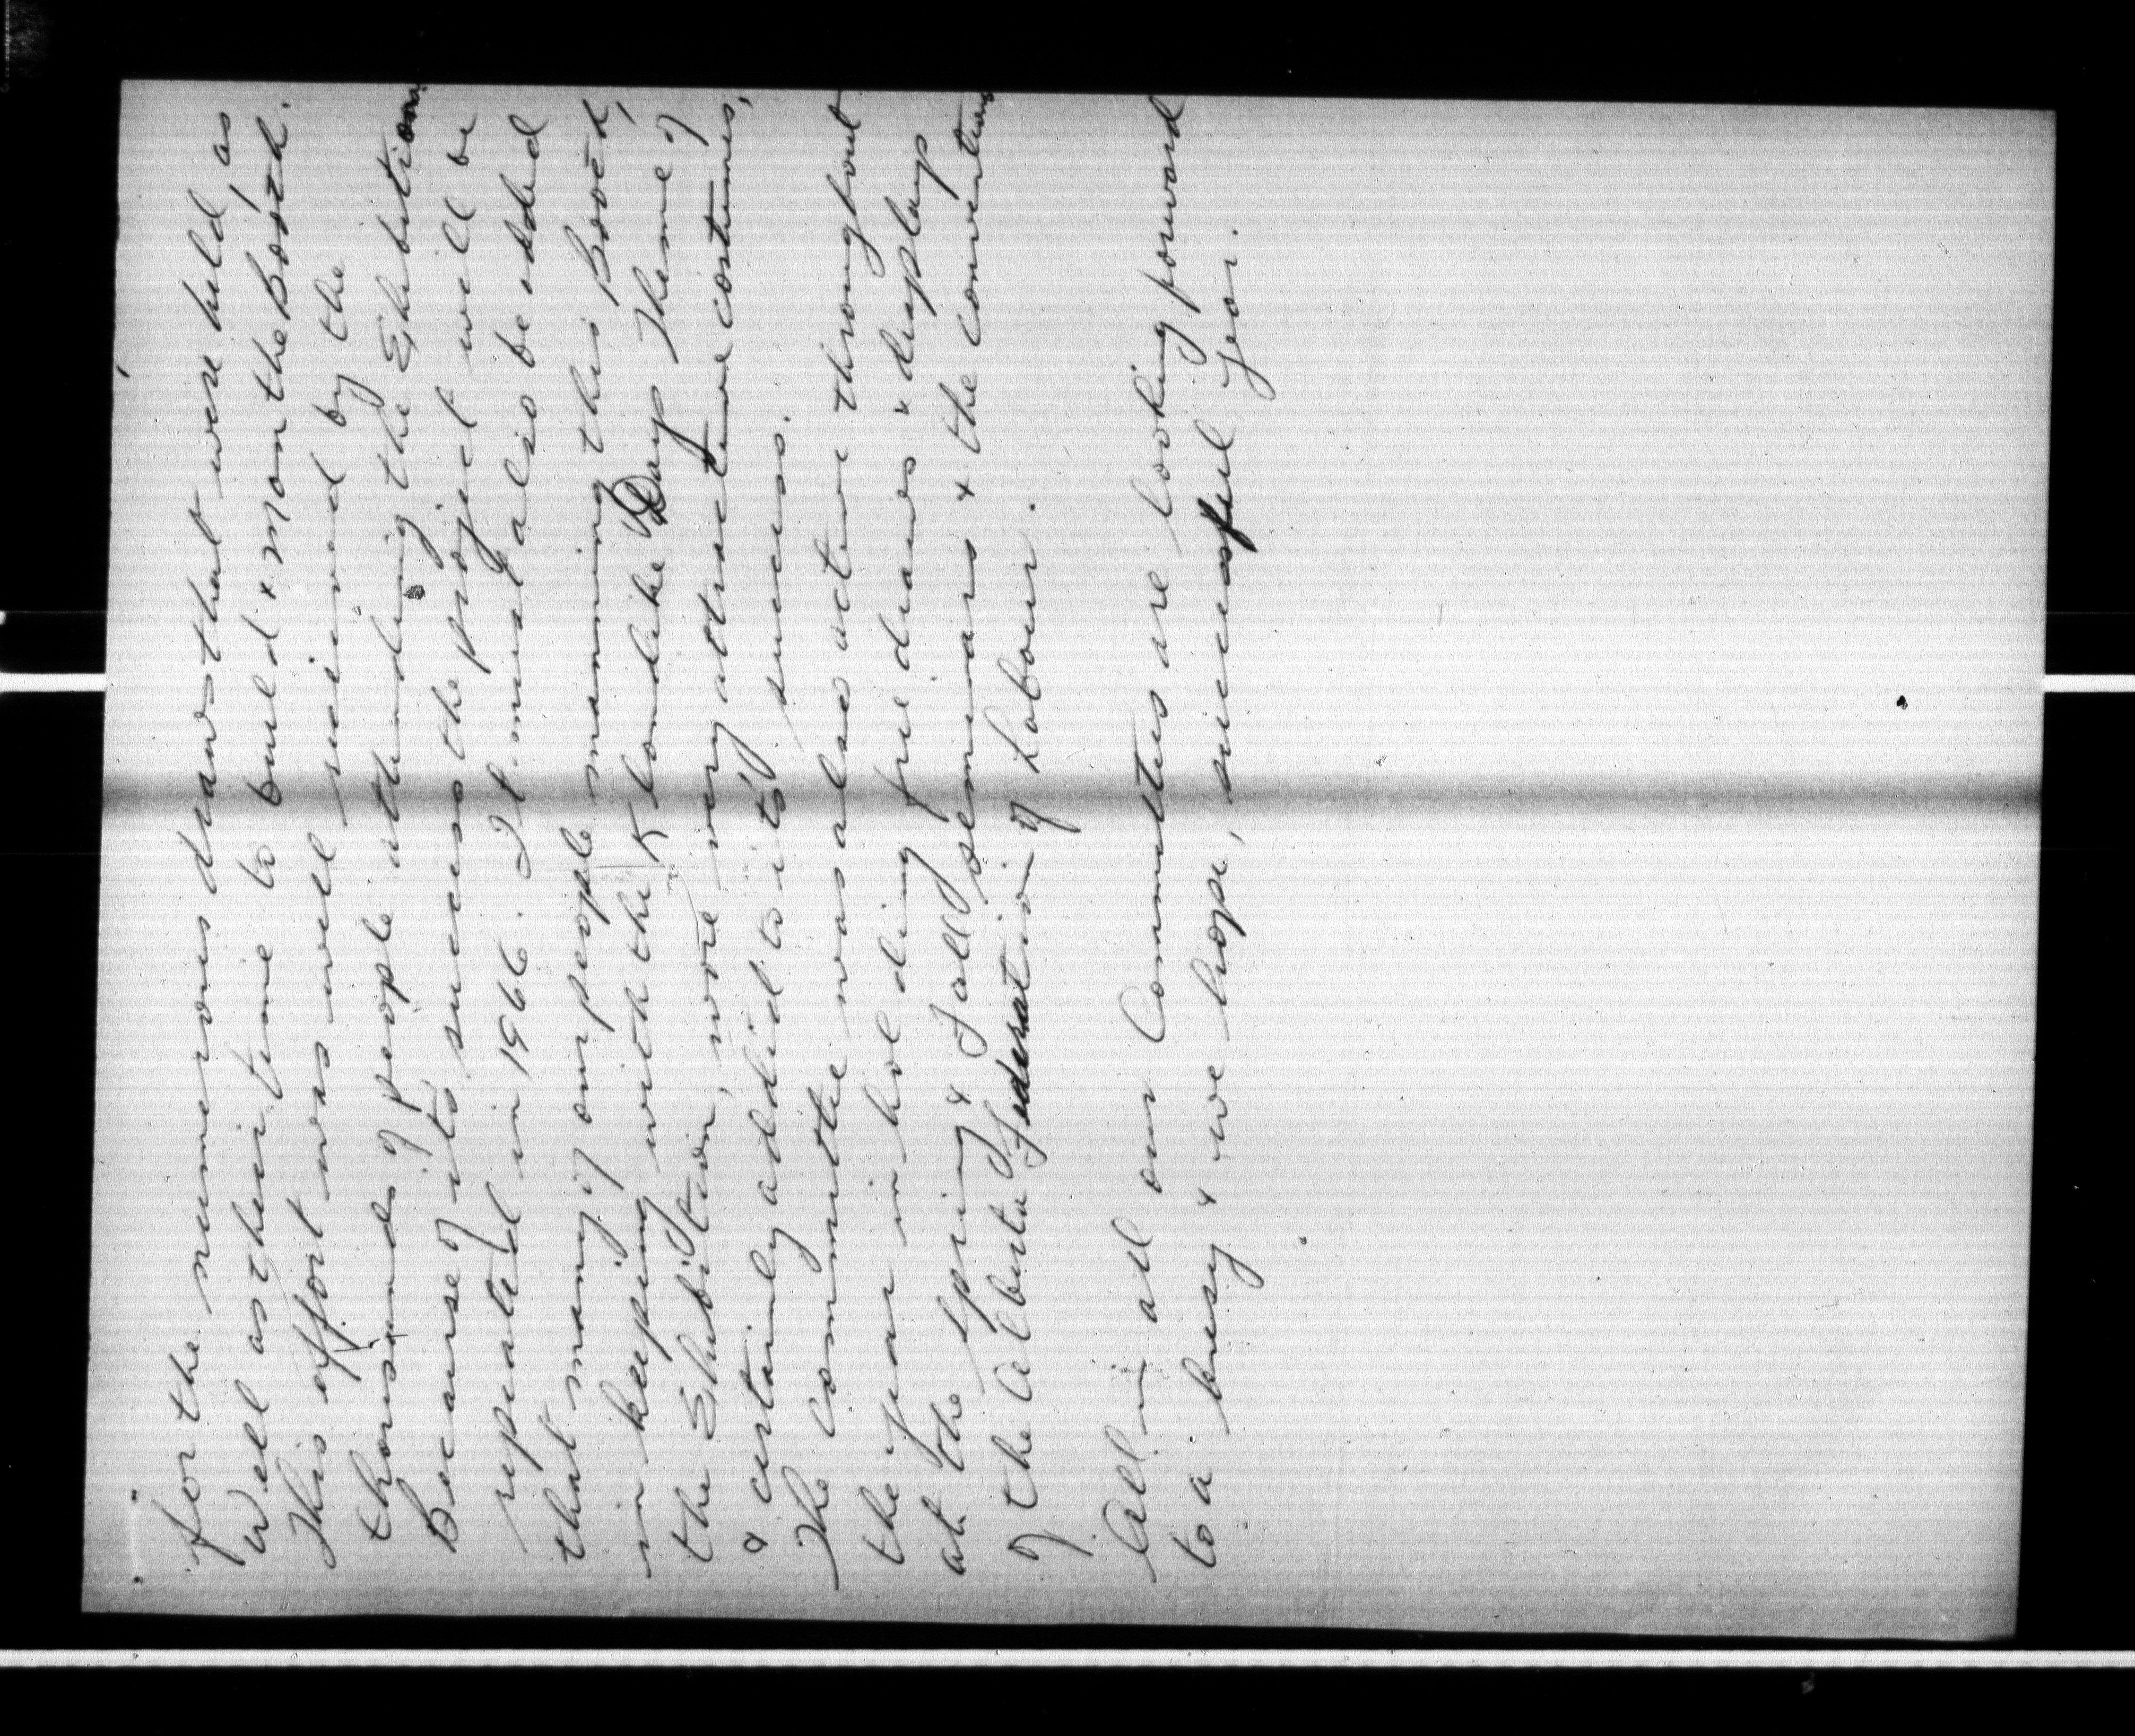 for the numerous draws that were held, as
well as their time to build & man the Booth.
This effort was well received by the
thousands of people attending the Exhibition
Because of its success the project will be
repeated in 1966. It must also be added
that many of our people manning this Booth,
in keeping with the Klondike Days Theme of
the Exhibition, wore very attractive costumes,
& certainly added to its success.
The committee was also active throughout
the year in holding free draws & display
at the Spring & Fall seminars & the convention
of the Alberta Federation of Labour.
All in all our Committees are looking forward
to a busy & we hope, successful year.